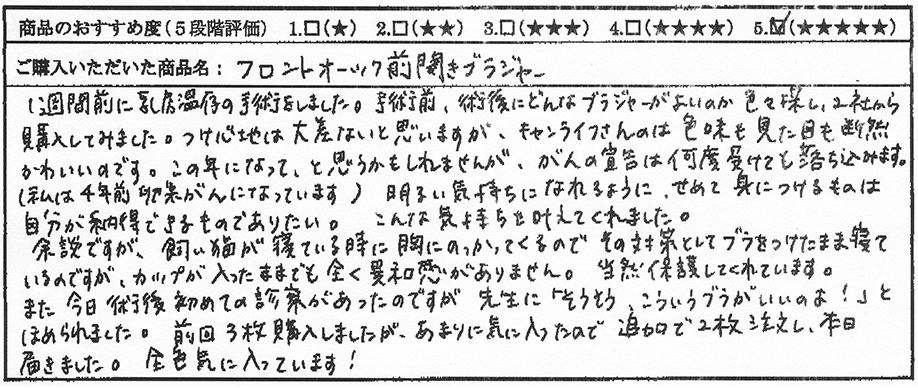 商品のおすすめ度(5段階評価) 1.□(★) 2.□(★★) 3.□(★★★) 4.□(★★★★) 5.☑(★★★★★)
ご購入いただいた商品名: フロントホック前開きブラジャー
1週間前に乳房温存の手術をしました。手術前、術後にどんなブラジャーがよいのか色々探し、2社から
購入してみました。つけ心地は大差ないと思いますが、キャンライフさんのは色味も見た目も断然
かわいいのです。この年になって、と思うかもしれませんが、がんの宣告は何度受けても落ち込みます。
(私は4年前卵巣がんになっています) 明るい気持ちになれるように、せめて身につけるものは
自分が納得できるものでありたい。 こんな気持ちを叶えてくれました。
余談ですが、飼い猫が寝ている時に胸にのっかってくるのでその対策としてブラをつけたまま寝て
いるのですが、カップが入ったままでも全く異和感がありません。当然保護してくれています。
また今日術後初めての診察があったのですが先生に「そうそう、こういうブラがいいのよ!」と
ほめられました。 前回3枚購入しましたが、あまりに気に入ったので追加で2枚注文し、本日
届きました。全色気に入っています!